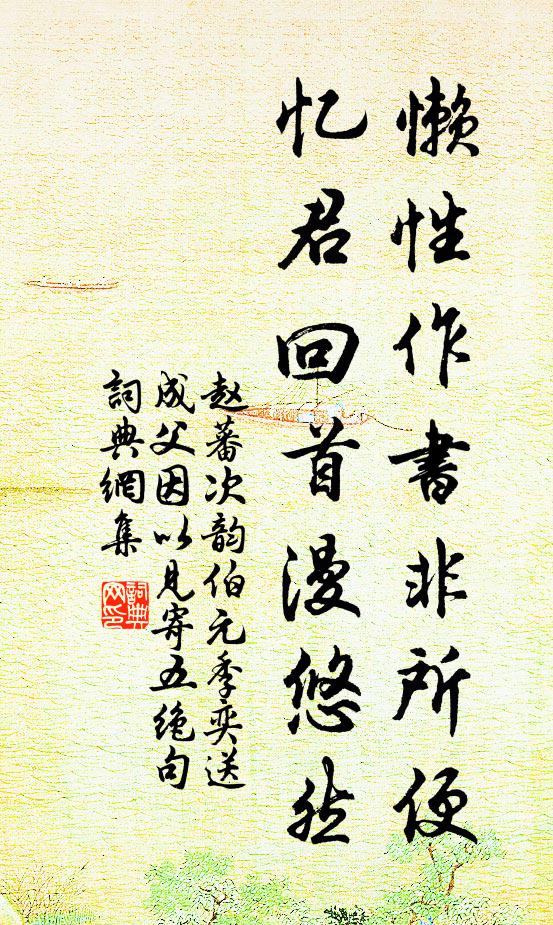 懒性作書非所便
忆君回首漫悠然
赵蕃次韵伯元季奕送
成父因以见寄五绝句
詞典網集
詞典
网印